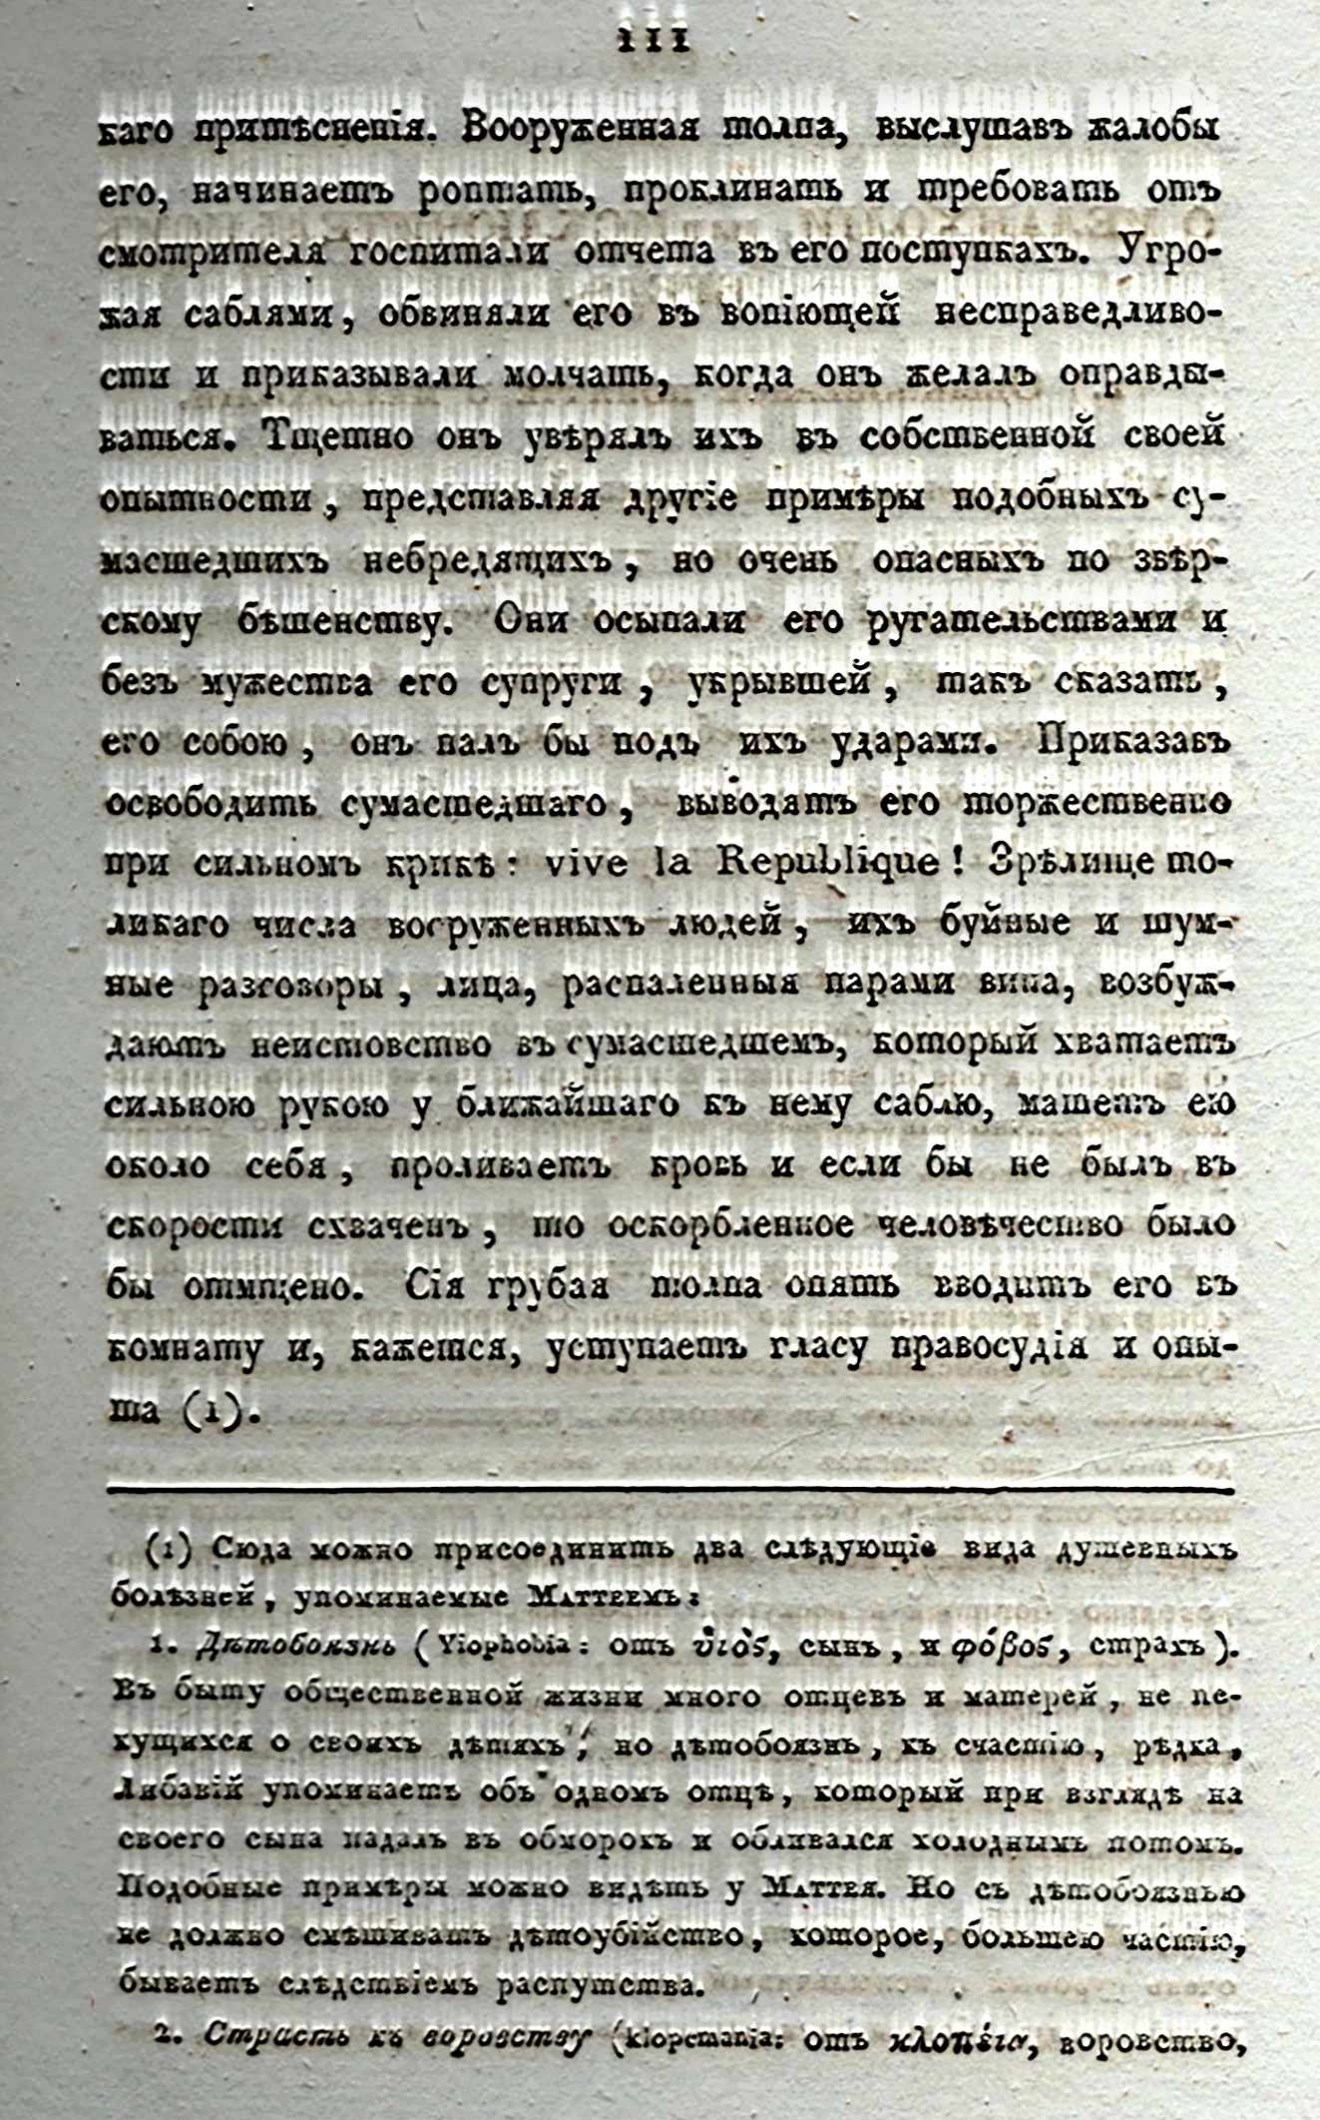 111
каго притѣсненія. Вооруженная толпа, выслушавъ жалобы
его, начинаетъ роптать, проклинать и требовать отъ
смотрителя госпитали отчета въ его поступкахъ. Угро-
жая саблями, обвиняли его въ вопіющей несправедливо-
сти и приказывали молчать, когда онъ желалъ оправды-
ваться. Тщетно онъ увѣрялъ ихъ въ собственной своей
опытности, представляя другіе примѣры подобныхъ су-
масшедшихъ небредящихъ, но очень опасныхъ по звѣр-
скому бѣшенству. Они осыпали его ругательствами и
безъ мужества его супруги, укрывшей, такъ сказать,
его собою, онъ палъ бы подъ ихъ ударами. Приказавъ
освободить сумасшедшаго, выводятъ его торжественно
при сильномъ крикѣ: vive la Republique! Зрѣлище то-
ликаго числа вооруженныхъ людей, ихъ буйные и шум-
ные разговоры, лица, распаленныя парами вина, возбуж-
даютъ неистовство въ сумасшедшемъ, который хватаетъ
сильною рукою у ближайшаго къ нему саблю, машетъ ею
около себя, проливаетъ кровь и если бы не былъ въ
скорости схваченъ, то оскорбленное человѣчество было
бы отмщено. Сія грубая толпа опять вводитъ его въ
комнату и, кажется, уступаетъ гласу правосудія и опы-
та (1).
(1) Сюда можно присоединить два слѣдующіе вида душевныхъ
болѣзней, упоминаемые Маттеемъ:
1. Дѣтобоязнь (Yiophobia: отъ ὑιὸς, сынъ, и φόβος, страхъ).
Въ быту общественной жизни много отцевъ и матерей, не пе-
кущихся о своихъ дѣтяхъ, но дѣтобоязнь, къ счастію, рѣдка,
Либавій упоминаетъ объ одномъ отцѣ, который при взглядѣ на
своего сына падалъ въ обморокъ и обливался холоднымъ потомъ.
Подобные примѣры можно видѣть у Маттея. Но съ дѣтобоязнью
не должно смѣшивать дѣтоубійство, которое, большею частію,
бываетъ слѣдствіемъ распутства.
2. Страсть къ воровству (klopemania: отъ κλοπέια, воровство,